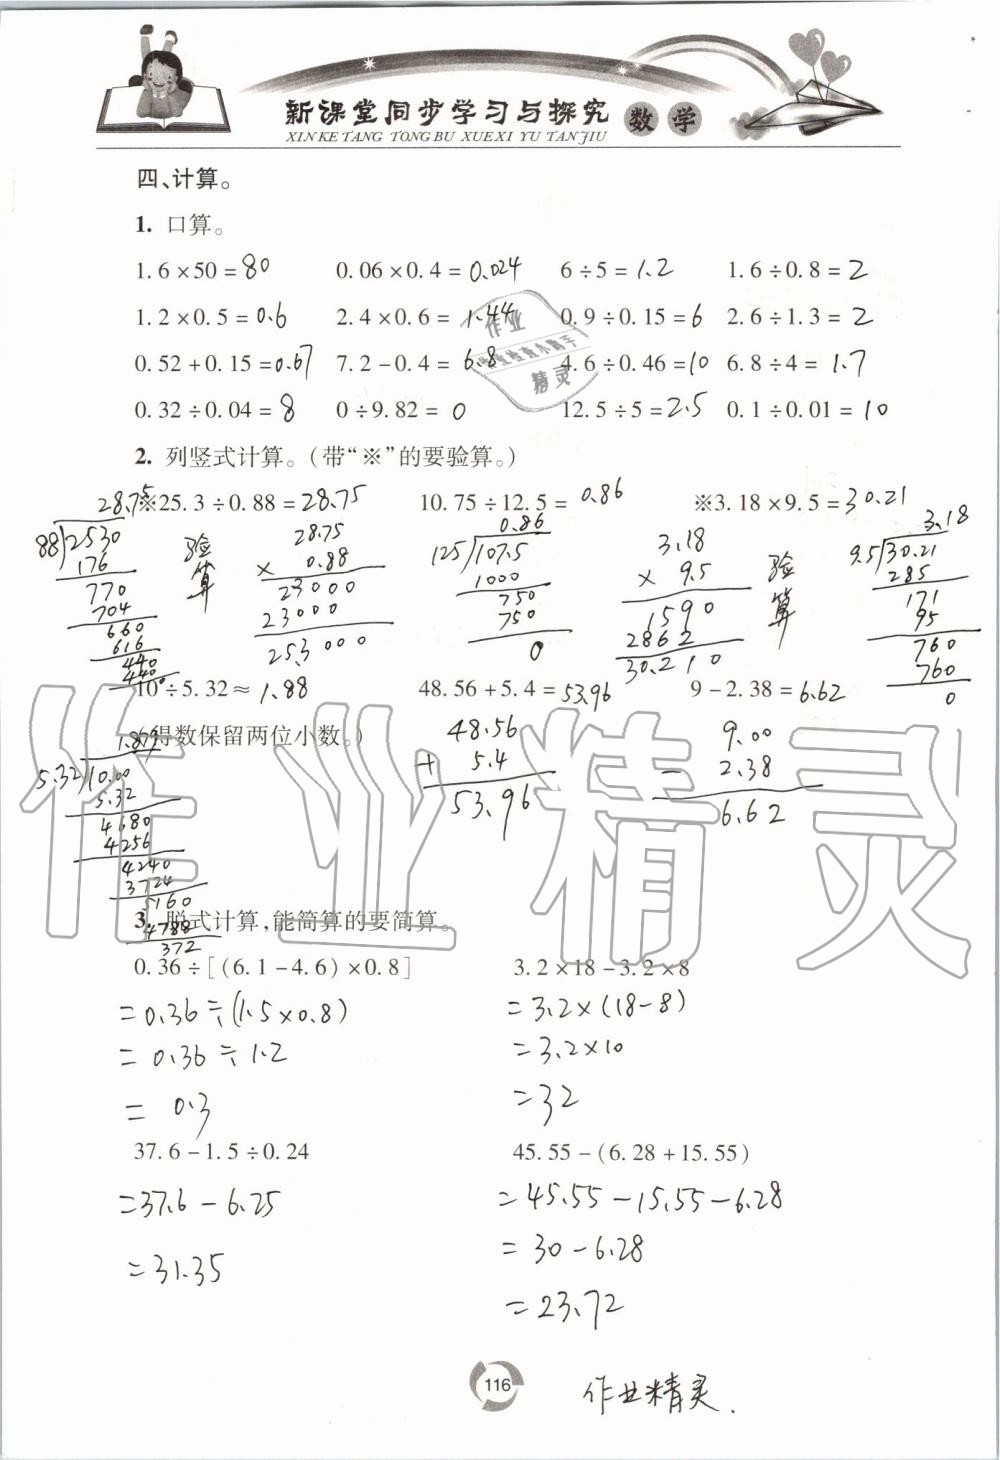 新课堂同步学习与探究 数学
XIN KE TANG TONG BU XUE XI YU TAN JIU
四、计算。
1. 口算。
1.6×50=80 0.06×0.4=0.024 6÷5=1.2 1.6÷0.8=2
1.2×0.5=0.6 2.4×0.6=1.44 0.9÷0.15=6 2.6÷1.3=2
0.52+0.15=0.67 7.2-0.4=6.8 4.6÷0.46=10 6.8÷4=1.7
0.32÷0.04=8 0÷9.82=0 12.5÷5=2.5 0.1÷0.01=10
作业
精灵
2. 列竖式计算。(带“※”的要验算。)
※25.3÷0.88=28.75 10.75÷12.5=0.86 ※3.18×9.5=30.21
28.75
88)2530
176
770
704
660
616
440
440
0
验算
28.75
× 0.88
23000
23000
25.3000
0.86
125)107.5
1000
750
750
0
3.18
× 9.5
1590
2862
30.210
验算
3.18
9.5)30.21
285
171
95
760
760
0
10÷5.32≈1.88 48.56+5.4=53.96 9-2.38=6.62
(得数保留两位小数。)
1.879
5.32)10.00
5.32
4680
4256
4240
3724
5160
4788
372
48.56
+ 5.4
53.96
9.00
- 2.38
6.62
作业精灵
3. 脱式计算,能简算的要简算。
0.36÷[(6.1-4.6)×0.8] 3.2×18-3.2×8
=0.36÷(1.5×0.8) =3.2×(18-8)
=0.36÷1.2 =3.2×10
=0.3 =32
37.6-1.5÷0.24 45.55-(6.28+15.55)
=37.6-6.25 =45.55-15.55-6.28
=31.35 =30-6.28
=23.72
116
作业精灵.